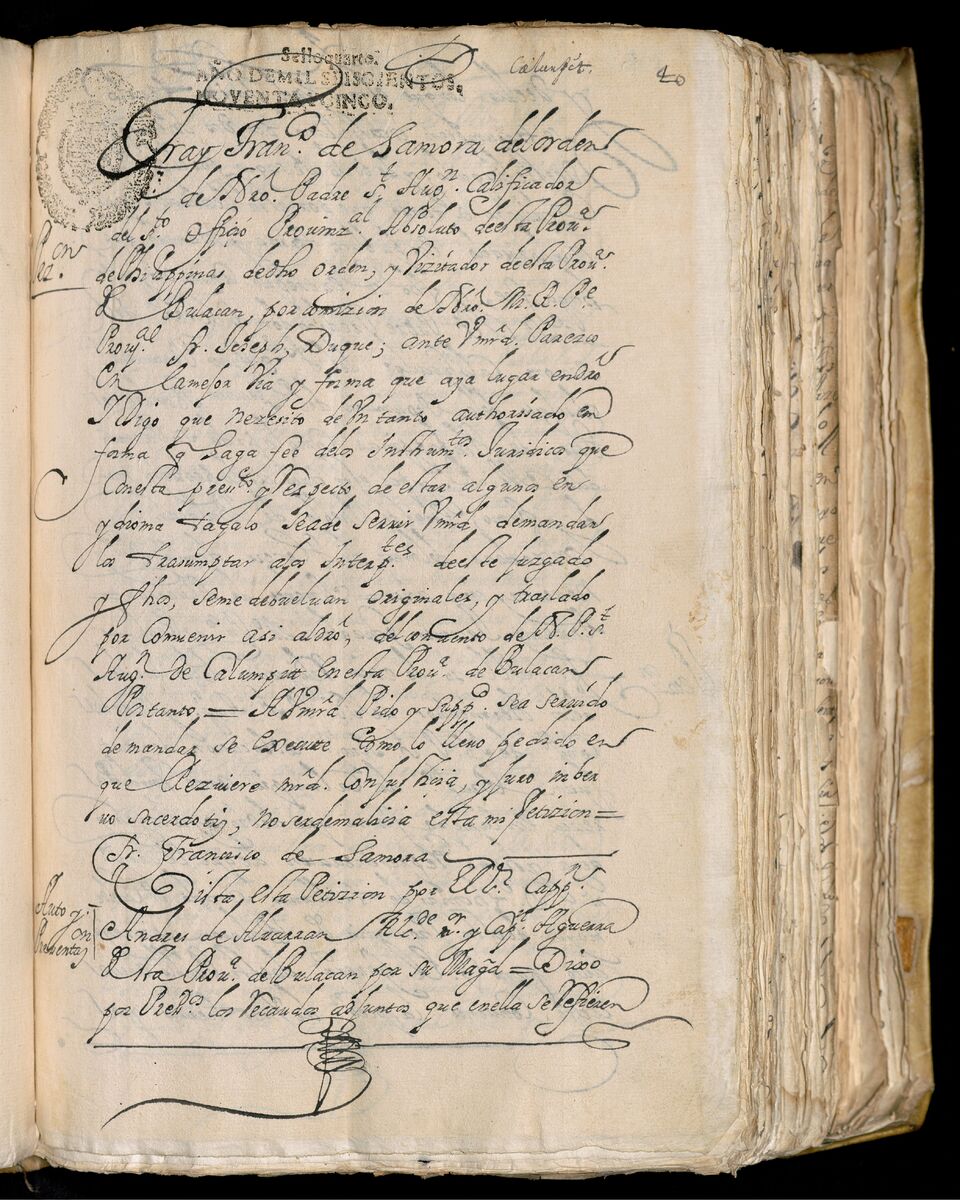 Sello quarto.
AÑO DE MIL SEISCIENTOS,
NOVENTA Y CINCO.
Calumpit.
40
Fray Fran.co de Samora del orden
de Nro. Padre S.t Aug.n Calificador
del S.to Officio Prouinz.al Absoluto de esta Prou.a
de Philippinas de dho orden, y Vizitador de esta Prou.a
de Bulacan, por comizion de Nro. M. R. P.e
Prou.al fr. Joseph Duque; ante Vmrd. Parezco
en la mejor Via y forma que aya lugar en dro
Y Digo que nezesito de Vn tanto authorisado en
forma q haga fee de los Instrum.tos Juridicos que
Con esta pres.to y Respecto de estar algunos en
ydioma tagalo se a de seruir Vmrd, de mandar
los trasumptar a los Interp.tes de este juzgado
y fhos, se me debueluan originales, y traslado
por Conuenir asi al dro, del conuento de N. P. S.t
Aug.n de Calumpitt en esta Prou.a de Bulacan
Por tanto = A Vmrd. Pido y supp.co sea seruido
de mandar se execute Como lo lleuo pedido en
que Rezuiere mrd. Con justicia, y juro in ber
uo sacerdotis, no ser de malicia esta mi Petizion =
Fr. Francisco de Samora
Vista esta Petizion por El Capp.n
Andres de Aluarran Alc.de m.or y Cap.n A guerra
de esta Prou.a de Bulacan por su Mag.d = Dixo
por Pres.dos los Recaudos adjuntos que en ella se Refieren
Pet.on
Auto y
Presentaz.on